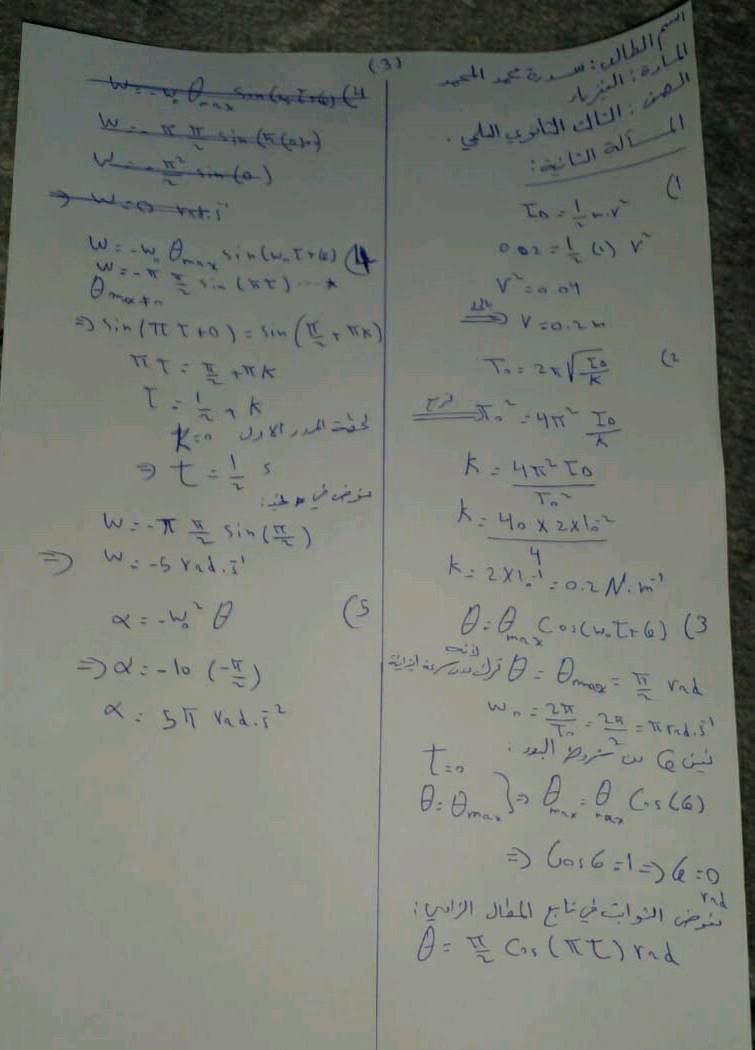 (3)
اسم الطالب: سدرة محمد المحمد
المادة: الفيزياء
الصف: الثالث الثانوي العلمي.
المسألة الثانية:
(1
I△ = 1/2 m.r²
0.02 = 1/2 (1) r²
r² = 0.04
⇒ r = 0.2 m
(2
T₀ = 2π√(I△/k)
⇒ T₀² = 4π² I△/k
k = 4π² I△/T₀²
k = 40 × 2×10⁻²/4
k = 2×10⁻¹ = 0.2 N.m⁻¹
θ = θmax cos(ω₀t+φ) (3
θ = θmax = π/2 rad لأنه ترك دون سرعة ابتدائية
ω₀ = 2π/T₀ = 2π/2 = π rad.s⁻¹
نعين φ من شروط البدء:
t=0
θ=θmax } ⇒ θmax = θmax cos(φ)
⇒ cosφ = 1 ⇒ φ = 0 rad
نعوض الثوابت في تابع المطال الزاوي:
θ = π/2 cos(πt) rad
ω = -ω₀ θmax sin(ω₀t+φ) (4
ω = -π π/2 sin(π(0)+0)
ω = -π²/2 sin(0)
⇒ ω = 0 rad.s⁻¹
ω = -ω₀ θmax sin(ω₀t+φ) (4
ω = -π π/2 sin(πt) ... *
⇒ sin(πt+0) = sin(π/2 + πk)
πt = π/2 + πk
t = 1/2 + k
لحظة المرور الأول k=0
⇒ t = 1/2 s
نعوض في * نجد:
ω = -π π/2 sin(π/2)
⇒ ω = -5 rad.s⁻¹
α = -ω₀² θ (5
⇒ α = -10 (-π/2)
α = 5π rad.s⁻²